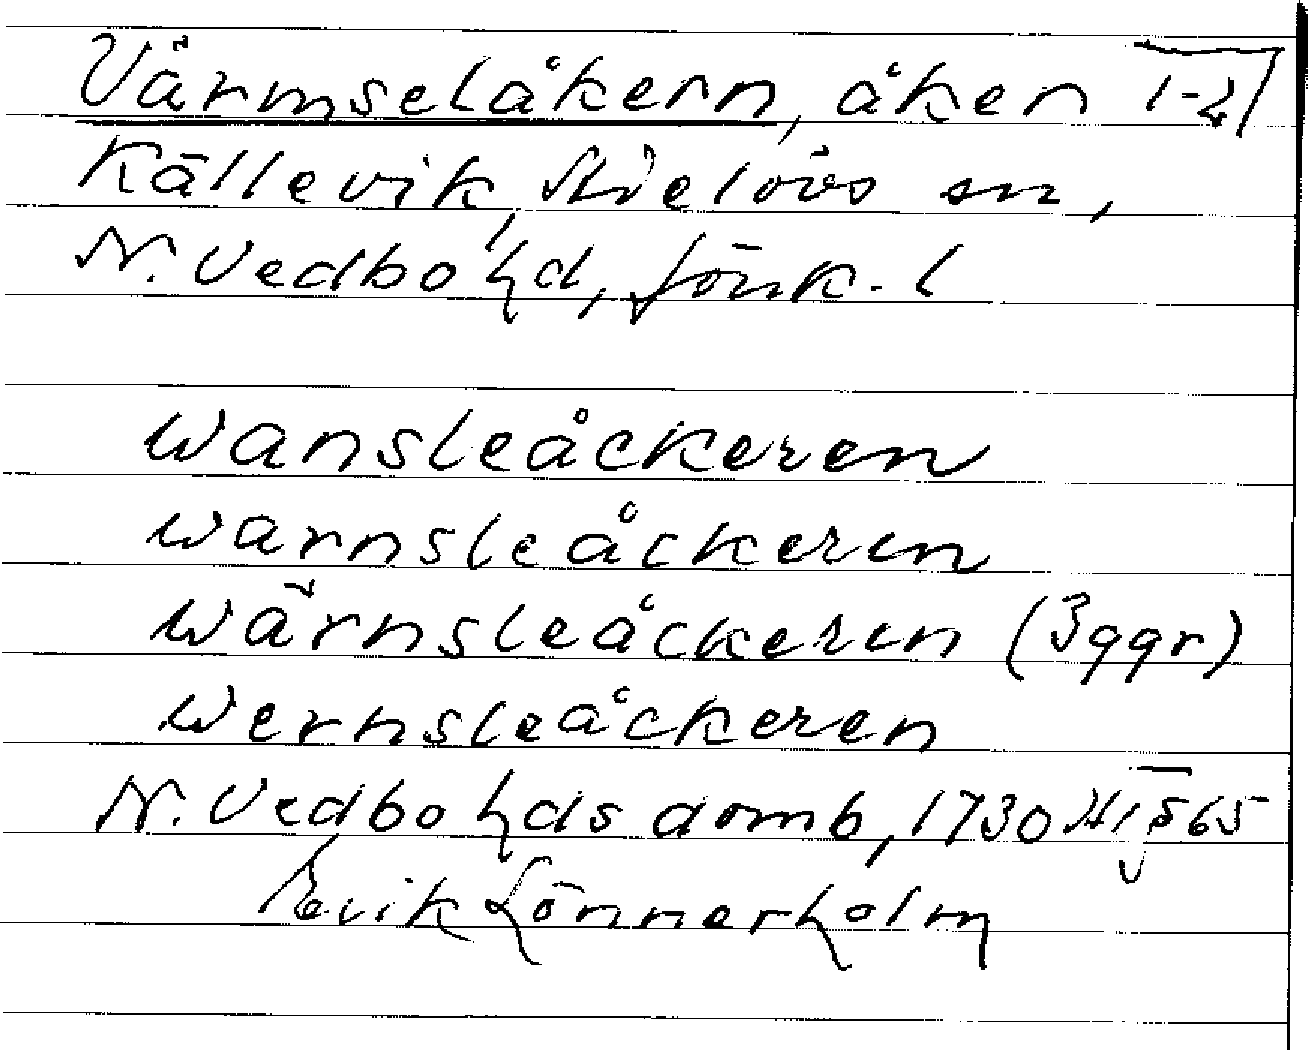 Värmseläkern, åker 1-2
Källevik, Skielövs sn,
N. Vedbo hd, Jönk. l
Wansleåckeren
Warnsleåckeren
Wärnsleåckeren (3 ggr)
Wernsleåckeren
N. Vedbo hds domb, 1730 565
Erik Lönnerholm